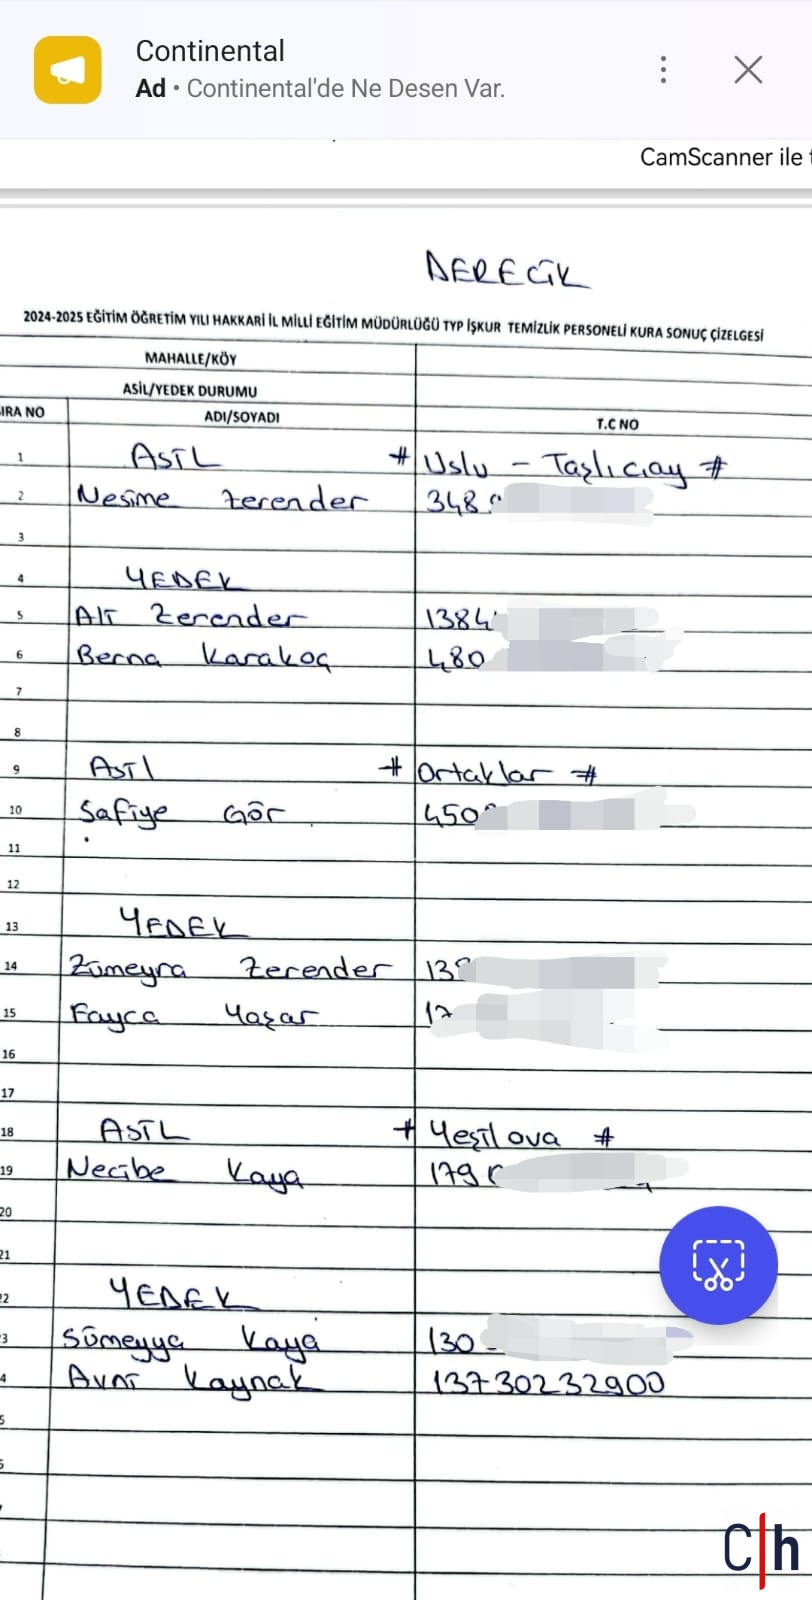 Continental
Ad • Continental'de Ne Desen Var.
CamScanner ile
DERECİK
2024-2025 EĞİTİM ÖĞRETİM YILI HAKKARİ İL MİLLİ EĞİTİM MÜDÜRLÜĞÜ TYP İŞKUR TEMİZLİK PERSONELİ KURA SONUÇ ÇİZELGESİ
MAHALLE/KÖY
ASİL/YEDEK DURUMU
IRA NO ADI/SOYADI T.C NO
1 ASİL # Uslu - Taşlıçay #
2 Nesime Zerender 348
3
4 YEDEK
5 Ali Zerender 1384
6 Berna Karakoç 480
7
8
9 Asil # Ortaklar #
10 Safiye Gör 450
11
12
13 YEDEK
14 Zümeyra Zerender 13
15 Fayca Yaşar 17
16
17
18 ASİL # Yeşilova #
19 Necibe Kaya 179
20
21
22 YEDEK
3 Sümeyya Kaya 130
4 Avni Kaynak 13730232900
5
C|h